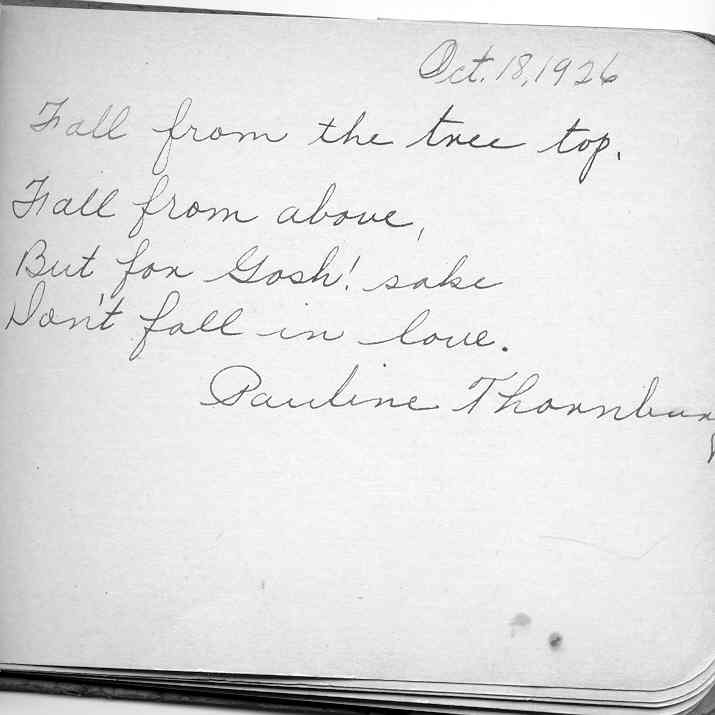 Oct. 18, 1926
Fall from the tree top.
Fall from above,
But for Gosh! sake
Don't fall in love.
Pauline Thornburg